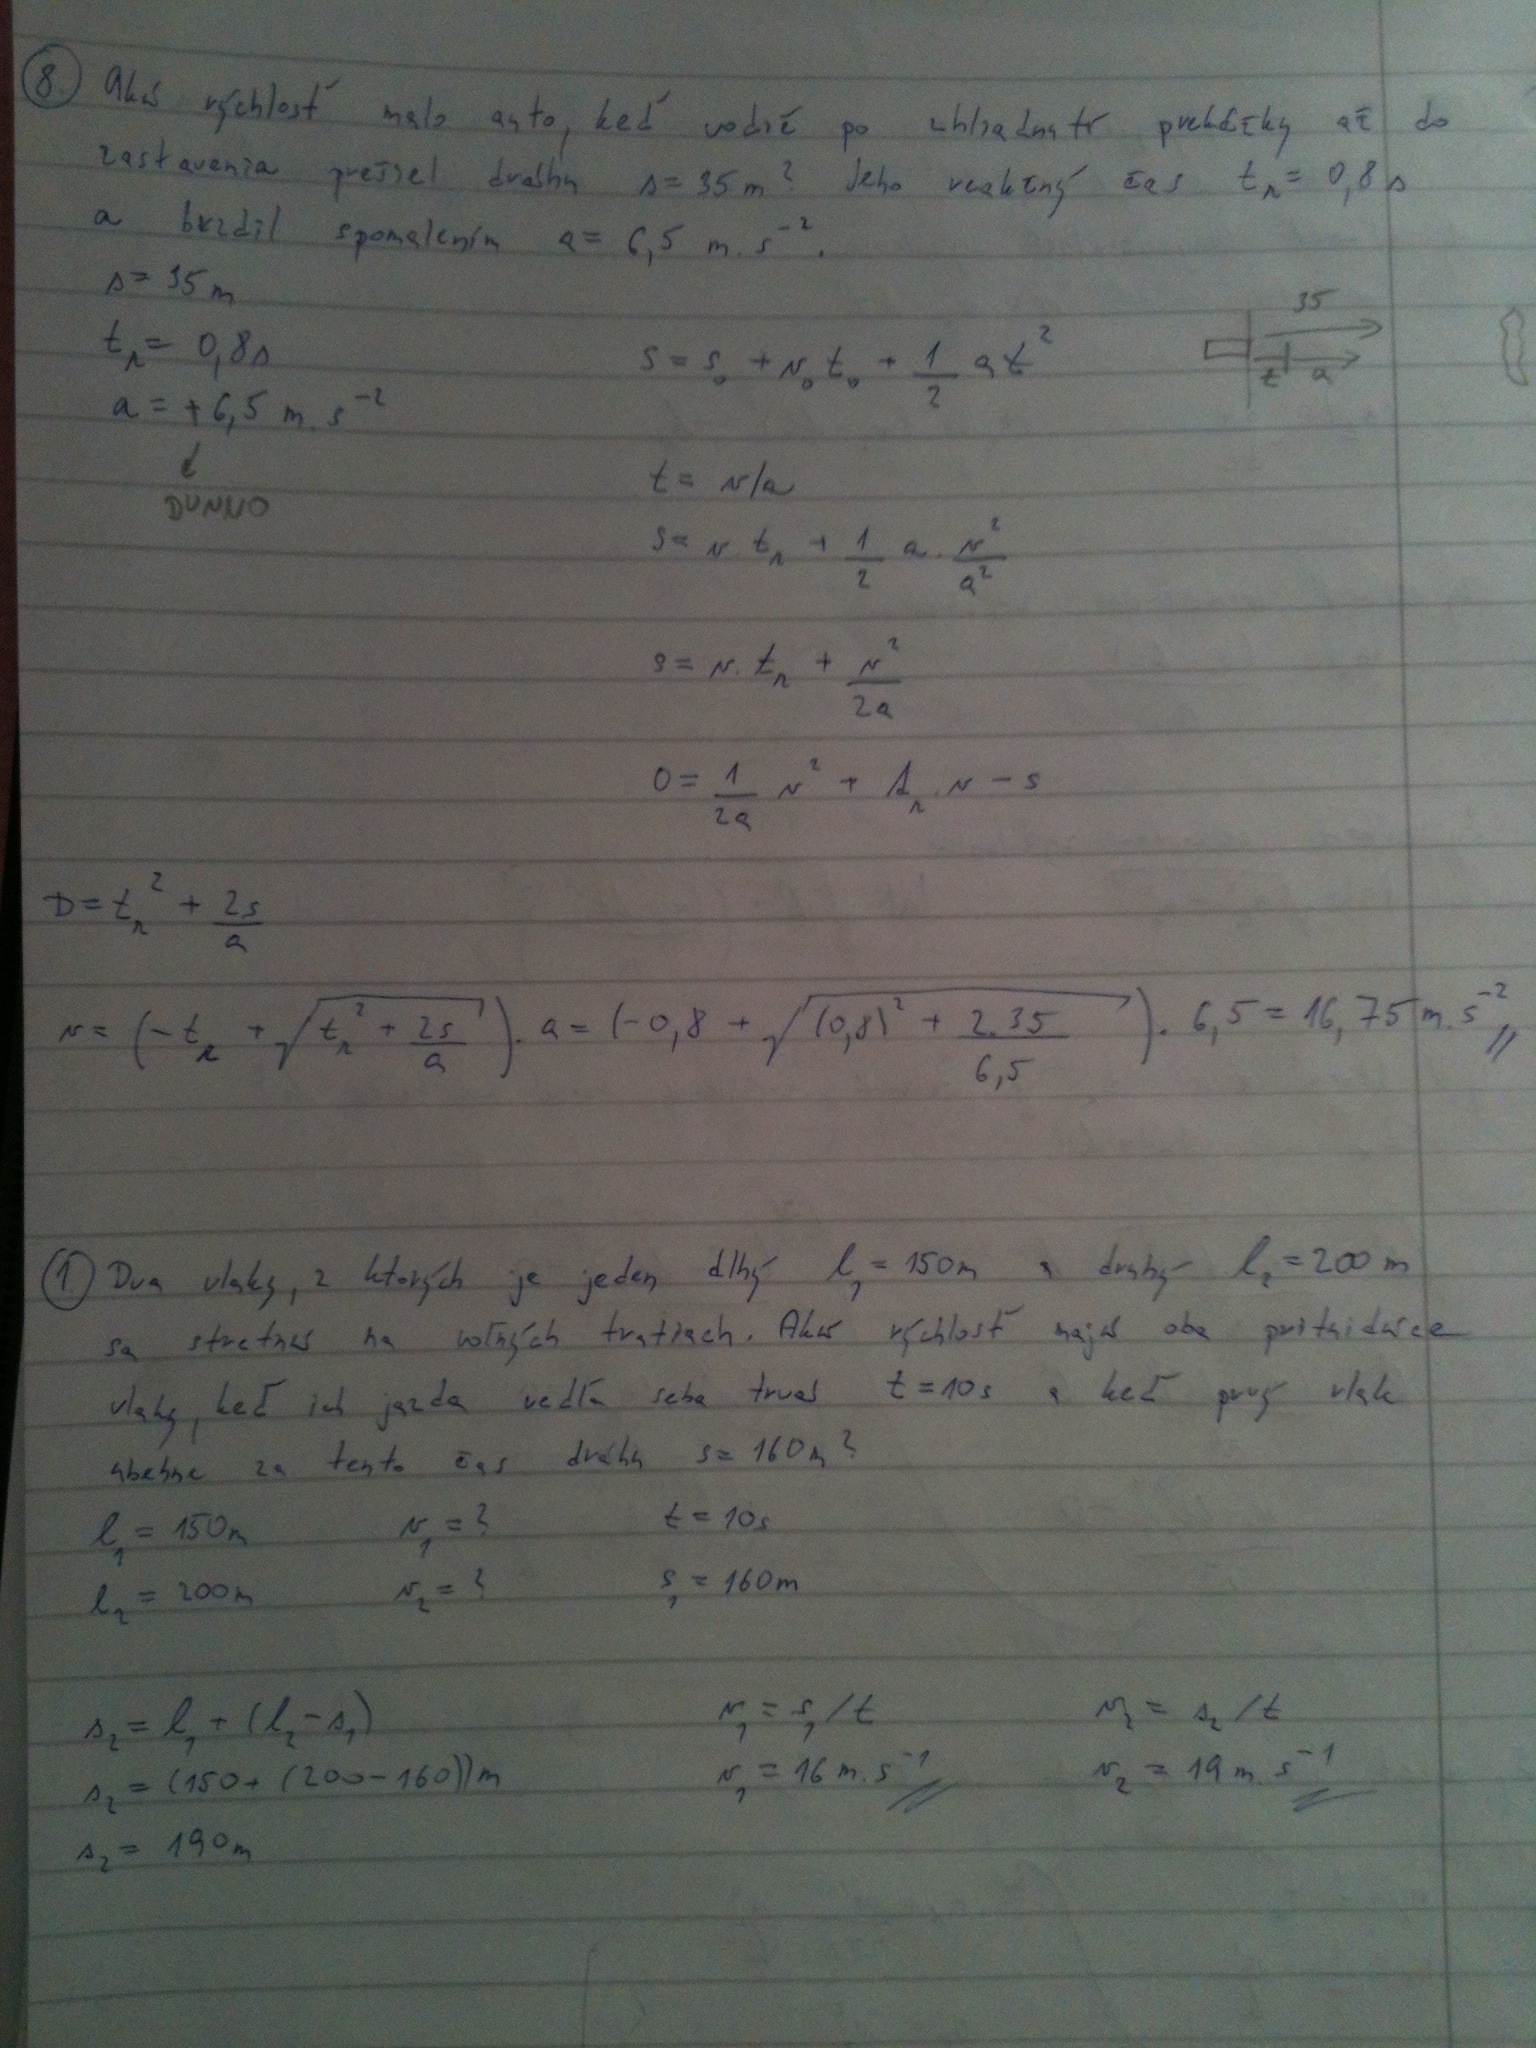 8. Akú rýchlosť malo auto, keď vodič po uhliadnutí prekážky až do
zastavenia prešiel dráhu s = 35 m? Jeho reakčný čas t_r = 0,8 s
a brzdil spomalením a = 6,5 m.s⁻².
s = 35 m
35
t_r = 0,8 s
s = s₀ + v₀ t₀ + 1/2 a t²
t a
a = +6,5 m.s⁻²
↓
DUNNO
t = v/a
s = v t_r + 1/2 a . v²/a²
s = v. t_r + v²/2a
0 = 1/2a v² + t_r . v - s
D = t_r² + 2s/a
v = (-t_r + √(t_r² + 2s/a)) . a = (-0,8 + √((0,8)² + 2.35/6,5)) . 6,5 = 16,75 m.s⁻²
1 Dva vlaky, z ktorých je jeden dlhý l₁ = 150 m a druhý l₂ = 200 m
sa stretnú na voľných tratiach. Akú rýchlosť majú oba
vlaky, keď ich jazda vedľa seba trvá t = 10 s a keď prvý vlak
ubehne za tento čas dráhu s = 160 m?
l₁ = 150 m v₁ = ? t = 10 s
l₂ = 200 m v₂ = ? s₁ = 160 m
s₂ = l₁ + (l₂ - s₁) v₁ = s₁/t v₂ = s₂/t
s₂ = (150 + (200 - 160)) m v₁ = 16 m.s⁻¹ v₂ = 19 m.s⁻¹
s₂ = 190 m